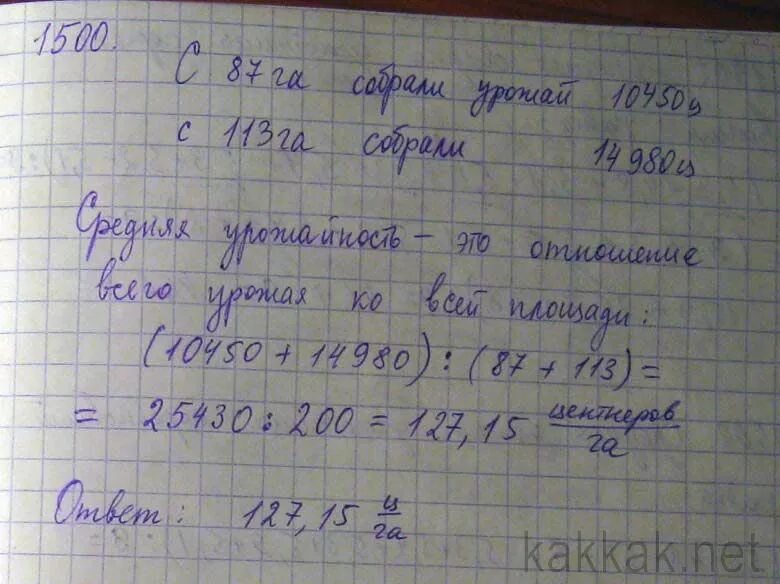 1500.
С 87га собрали урожай 10450ц
с 113га собрали 14980ц
Средняя урожайность – это отношение
всего урожая ко всей площади:
(10450 + 14980) : (87 + 113) =
= 25430 : 200 = 127,15 центнеров/га
Ответ: 127,15 ц/га
kakkak.net